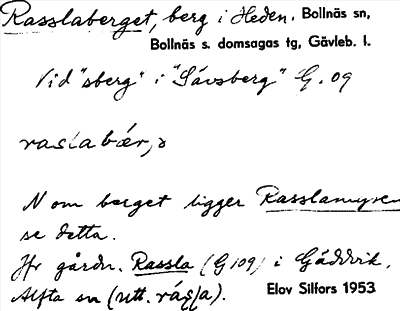 Rasslaberget, berg i Heden. Bollnäs sn,
Bollnäs s. domsagas tg, Gävleb. l.
Vid "sberg" i "Sävsberg" G. 09
raslabär,ə
N om berget ligger Rasslamyren
se detta.
Jfr gårdn. Rassla (G 109) i Gäddvik,
Alfta sn (utt. 
Elov Silfors 1953